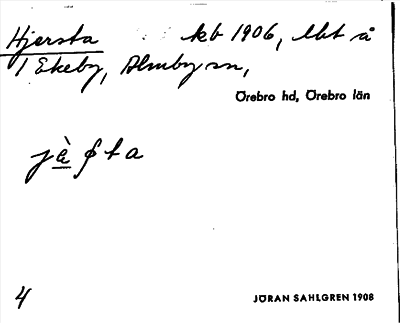 Hjersta kb 1906, lht å
1 Ekeby, Almby sn,
Örebro hd, Örebro län
jàʂta
4
JÖRAN SAHLGREN 1908